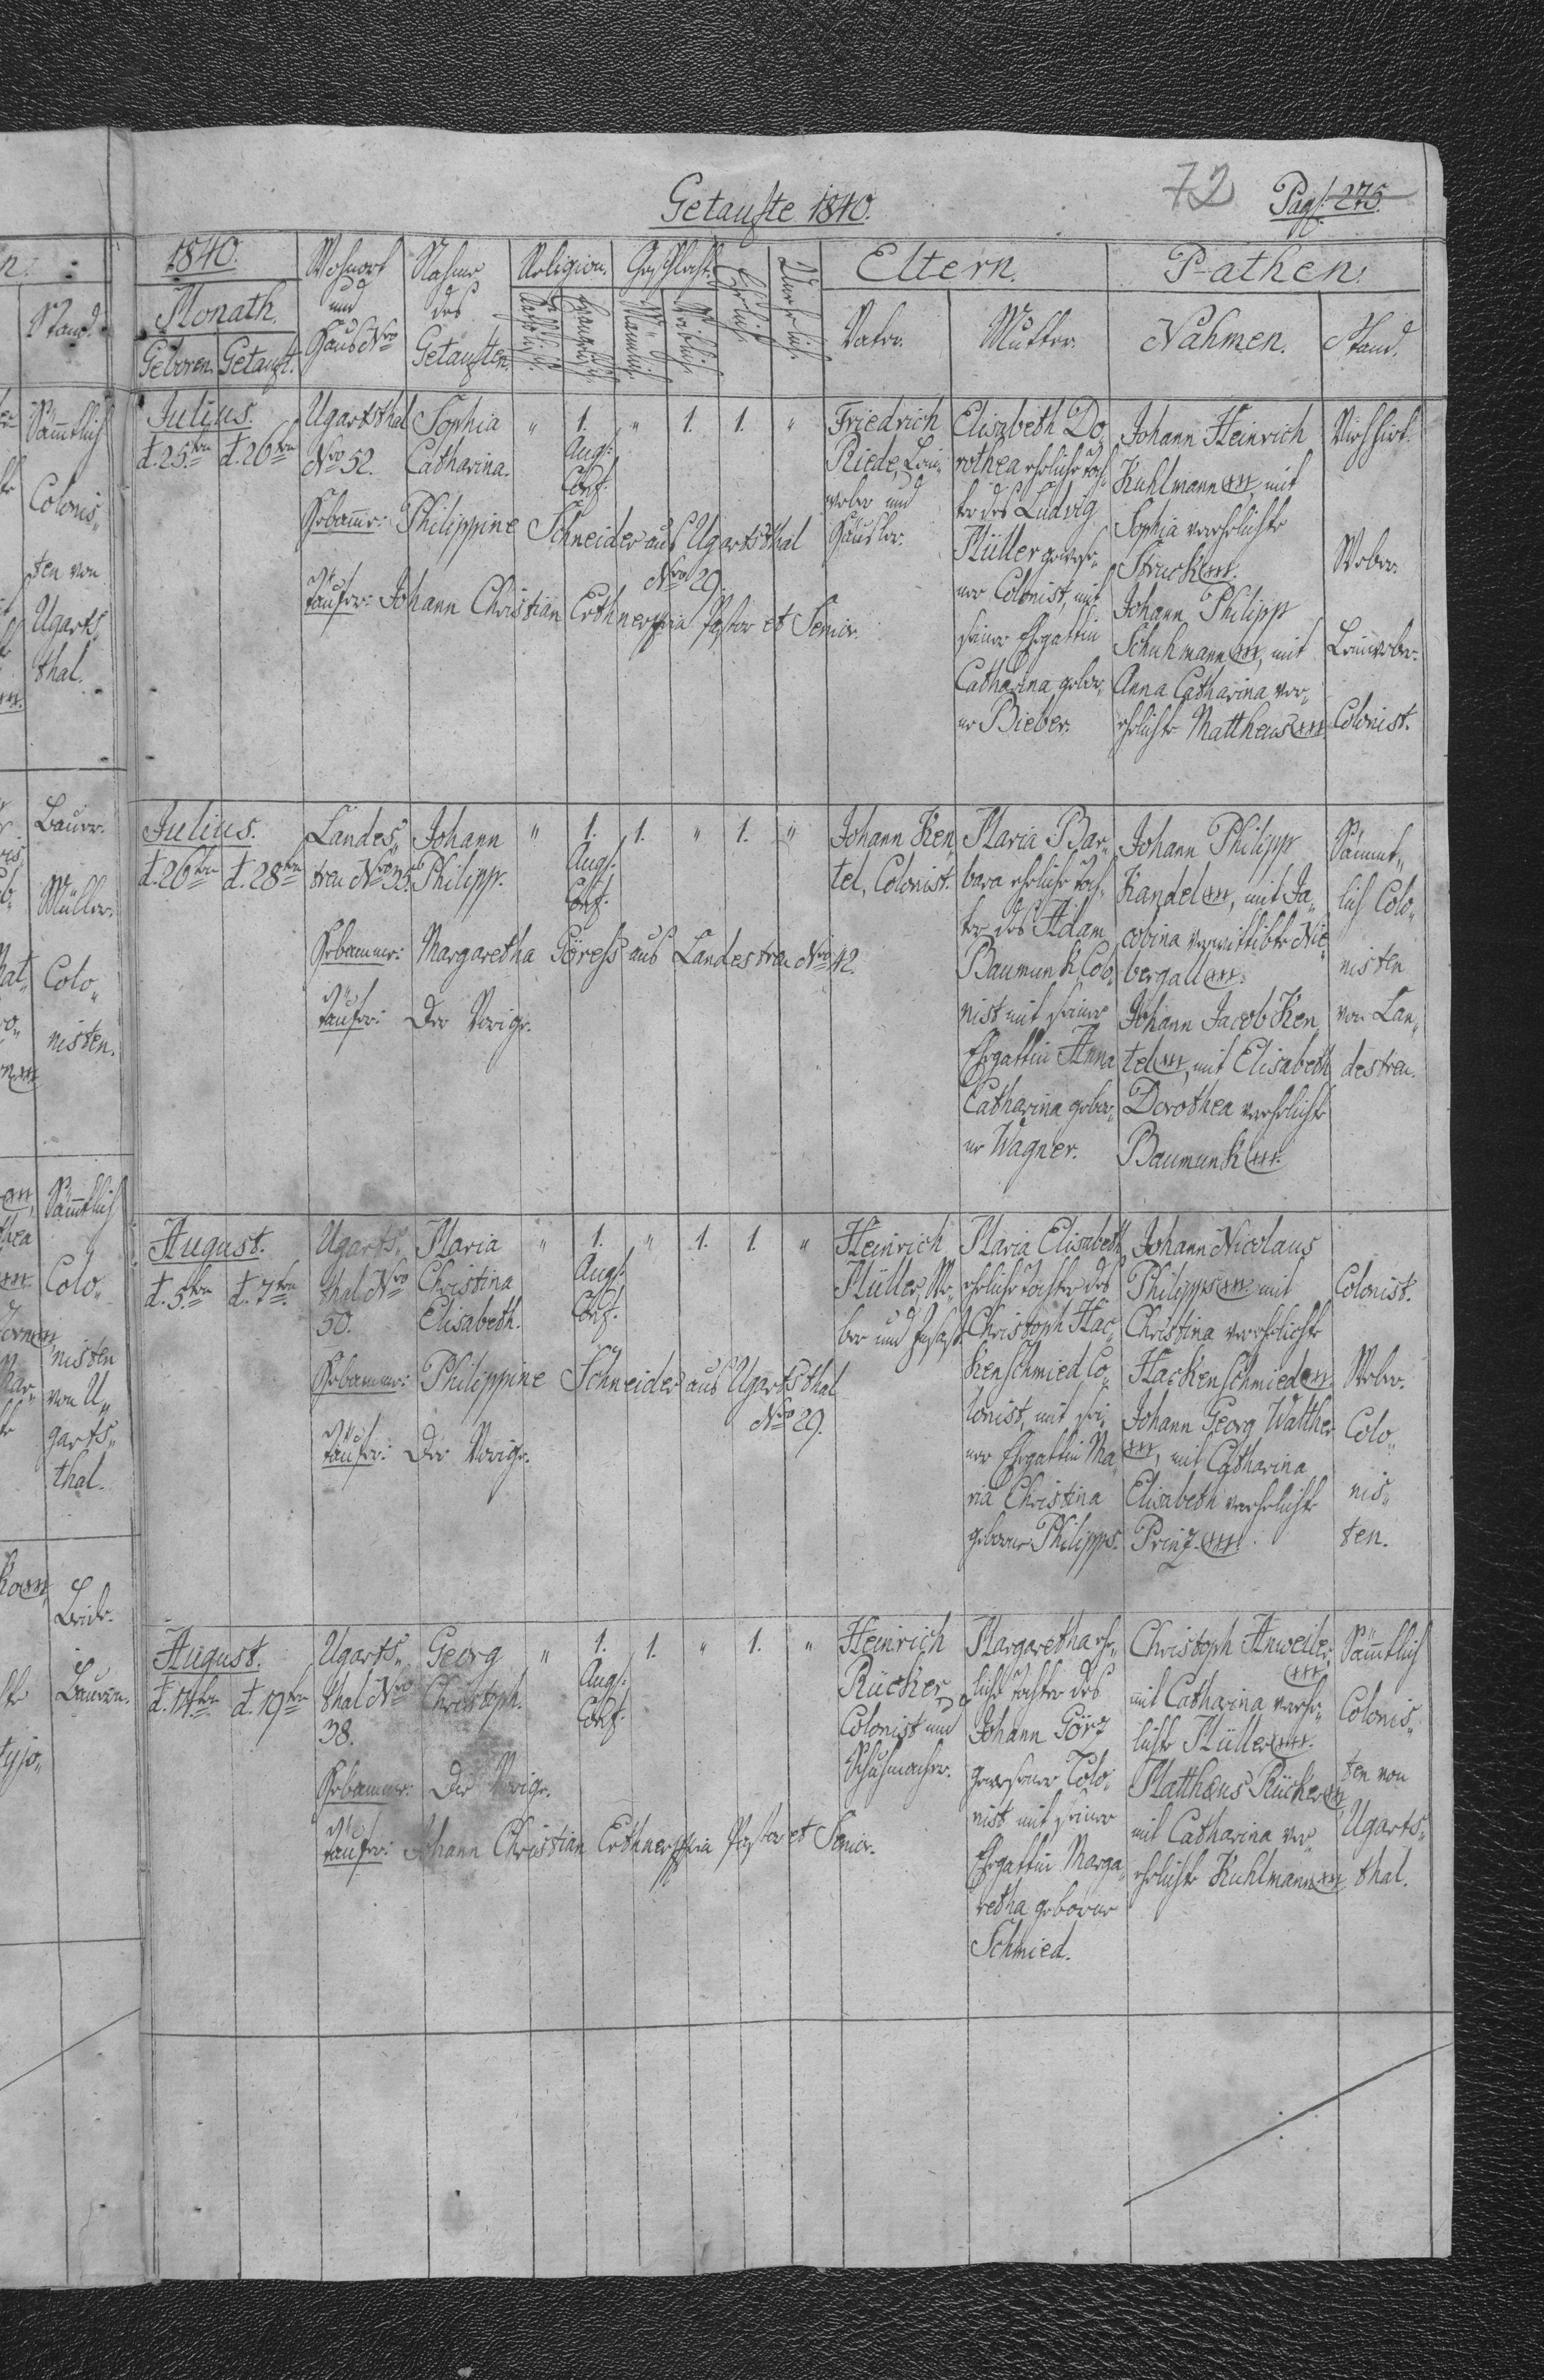 Getaufte 1840.
72 Pag: 275.
1840.
Monath.
Geboren. Getauft.
Wohnort und Haus Nro
Nahme des Getauften.
Religion.
Katholisch.
Evangelisch.
Geschlecht.
Männlich.
Weiblich.
Ehelich.
Unehelich.
Eltern.
Vater. Mutter.
Pathen.
Nahmen. Stand.
Julius.
d. 25ten d. 26ten
Ugartsthal
Nro 52.
Sophia
Catharina.
" 1. " 1. 1. "
Augs:
Conf:
Friedrich
Riede, Lein„
weber und
Häusler.
Elisabeth Do„
rothea eheliche Toch„
ter des Ludwig
Müller gewese„
ner Colonist, mit
seiner Ehegattin
Catharina gebor„
ne Bieber.
Johann Heinrich
Kuhlmann, mit
Sophia verehelichte
Struck.
Johann Philipp
Schuhmann, mit
Anna Catharina ver„
ehelichte Mattheus
Viehhirt.
Weber.
Leinweber.
Colonist.
Hebamme: Philippine Schneider aus Ugartsthal
Nro 29.
Täufer: Johann Christian Erthner Pastor et Senior.
Julius.
d. 26ten d. 28ten
Landes„
treu Nro 35.
Johann
Philipp.
" 1. 1. " 1. "
Augs:
Conf:
Johann Ken„
tel, Colonist.
Maria Bar„
bara eheliche Toch„
ter des Adam
Baumunk Colo„
nist mit seiner
Ehegattin Anna
Catharina gebor„
ne Wagner.
Johann Philipp
Kandel, mit Ja„
cobina verwittibte Nie„
bergall.
Johann Jacob Ken„
tel, mit Elisabeth
Dorothea verehelichte
Baumunk.
Sämmt„
lich Colo„
nisten
von Lan„
destreu.
Hebamme: Margaretha Göres aus Landestreu Nro 42.
Täufer: Der Vorige.
August.
d. 5ten d. 7ten
Ugarts„
thal Nro
50.
Maria
Christina
Elisabeth.
" 1. " 1. 1. "
Augs:
Conf:
Heinrich
Müller, We„
ber und Insaß
Maria Elisabeth
eheliche Tochter des
Christoph Hac„
kenschmied Co„
lonist, mit sei„
ner Ehegattin Ma„
ria Christina
geborne Philipps.
Johann Nicolaus
Philipps mit
Christina verehelichte
Hackenschmied
Johann Georg Walther
, mit Catharina
Elisabeth verehelichte
Prinz.
Colonist.
Weber.
Colo„
nis„
ten.
Hebamme: Philippine Schneider aus Ugartsthal
Nro 29.
Täufer: Der Vorige.
August.
d. 14ten d. 19ten
Ugarts„
thal Nro
38.
Georg
Christoph.
" 1. 1. " 1. "
Augs:
Conf:
Heinrich
Rücker
Colonist und
Schuhmacher.
Margaretha ehe„
liche Tochter des
Johann Görz
gewesener Colo„
nist mit seiner
Ehegattin Marga„
retha geborne
Schmied.
Christoph Anweiler
mit Catharina verehe„
lichte Müller.
Mattheus Rücker
mit Catharina ver„
ehelichte Kuhlmann
Sämmtlich
Colonis„
ten von
Ugarts„
thal.
Hebamme: Die Vorige.
Täufer: Johann Christian Erthner Pastor et Senior.
Stand.
Sämmtlich
Colonis„
ten von
Ugarts„
thal.
Bauer.
Müller.
Colo„
nisten.
Sämmtlich
Colo„
nisten
von U„
garts„
thal.
Bauern.